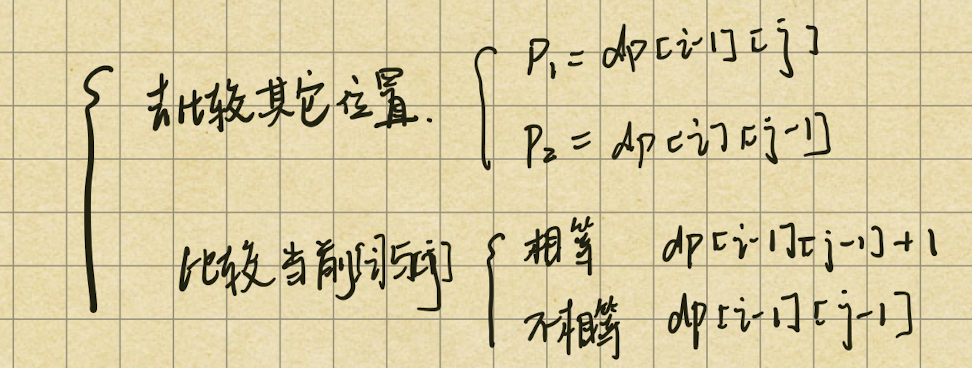 去比较其它位置.
P₁ = dp[i-1][j]
P₂ = dp[i][j-1]
比较当前[i]与[j]
相等 dp[i-1][j-1]+1
不相等 dp[i-1][j-1]